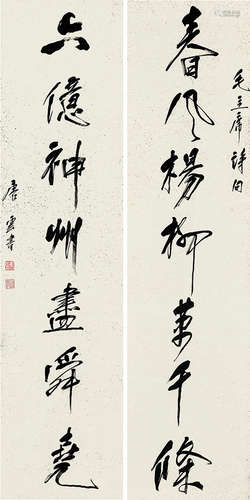 毛主席詩句
春風楊柳萬千條
六億神州盡舜堯
唐雲書